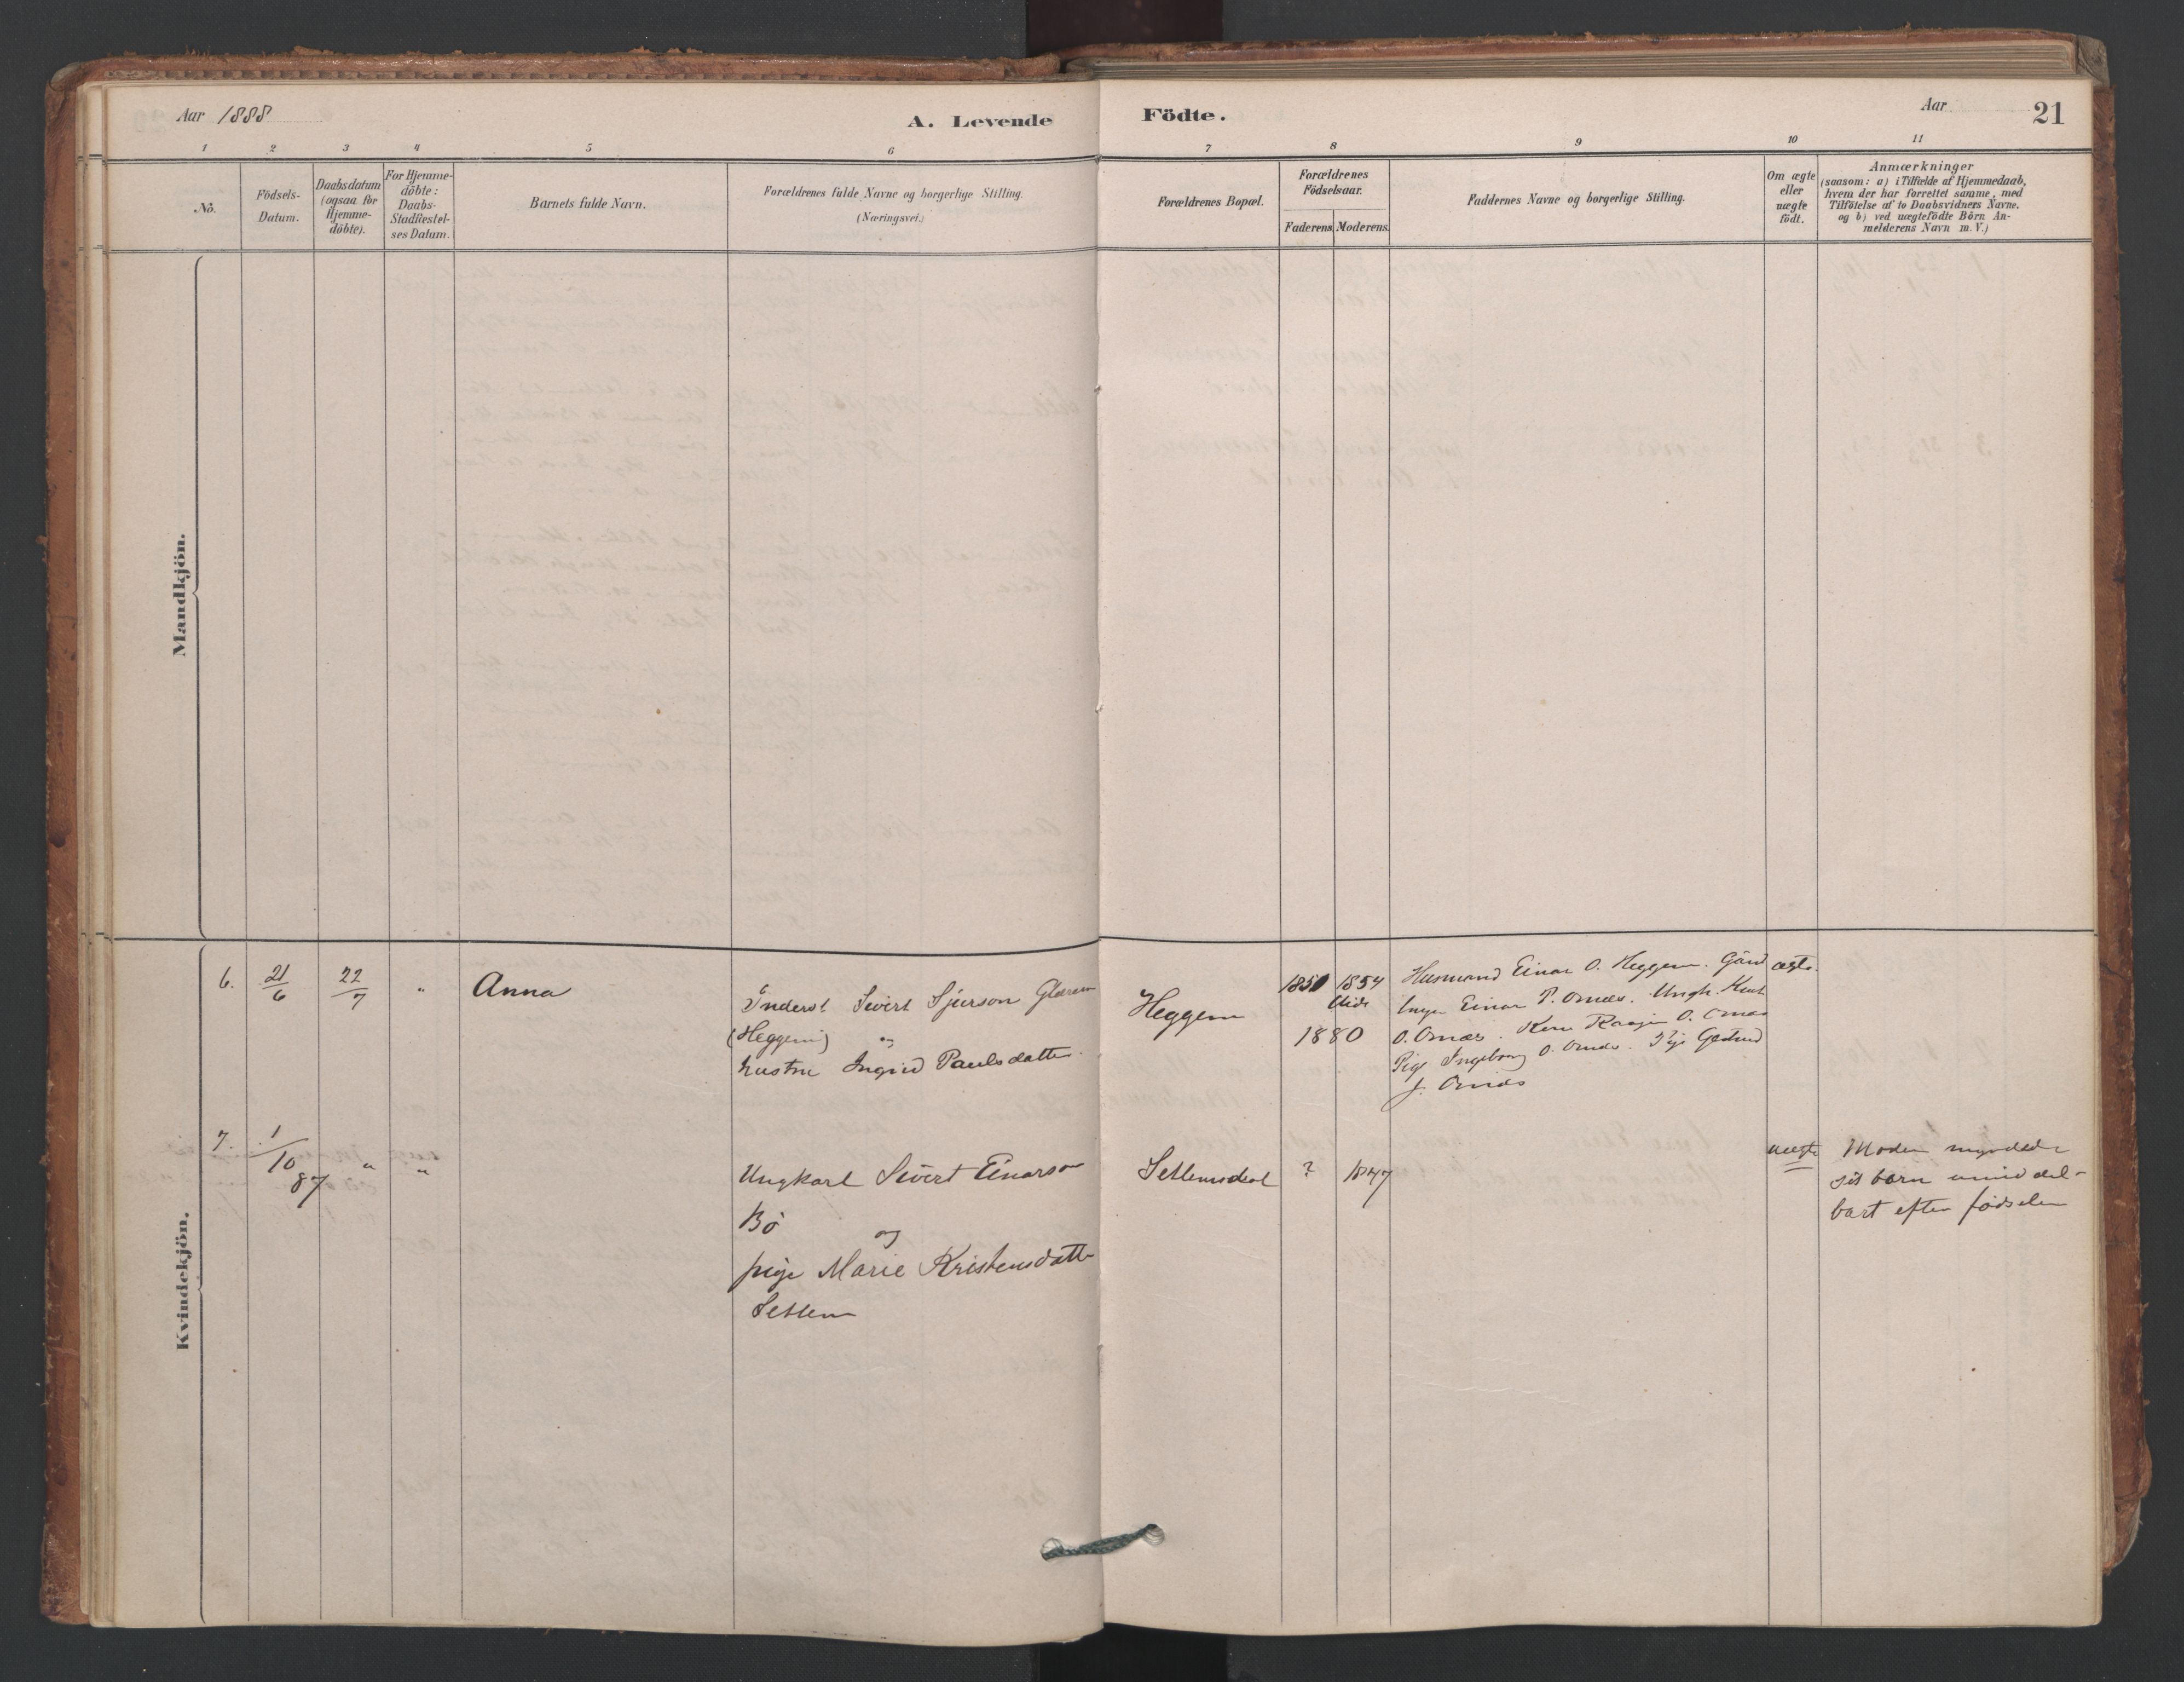 Aar 1888
A. Levende Födte.
Aar
21
1 2 3 4 5 6 7 8 9 10 11
No.
Födsels-
Datum.
Daabsdatum
(ogsaa for
Hjemme-
döbte).
For Hjemme-
döbte:
Daabs-
Stadfæstel-
ses Datum.
Barnets fulde Navn.
Forældrenes fulde Navne og borgerlige Stilling.
(Næringsvei.)
Forældrenes Bopæl.
Forældrenes
Födselsaar.
Faderens. Moderens.
Faddernes Navne og borgerlige Stilling.
Om ægte
eller
uægte
födt.
Anmærkninger
(saasom: a) i Tilfælde af Hjemmedaab,
hvem der har forrettet samme, med
Tilföielse af to Daabsvidners Navne,
og b) ved uægtefödte Börn An-
melderens Navn m. V.)
Mandkjön.
Kvindekjön.
6. 21/6 22/7 " Anna
Inderst Sivert Sjurson Glærem
(Heggem) og
hustru Ingrid Paulsdatter
Heggem
1850 1854
Udi
1880
Husmand Einar O. Heggem. Gård
Einar P. Ornæs. Ungk.
O. Ornæs. Kone O. Ornæs
Pige Ingeborg O. Ornæs. Pige
J. Ornæs
ægte.
7. 1/10 87 " "
Ungkarl Sivert Einarson
Bö
og
pige Marie Kristensdatter
Settem
Settemsdal
? 1847
uægte
Moder myrdede
sit barn umiddel-
bart efter födselen